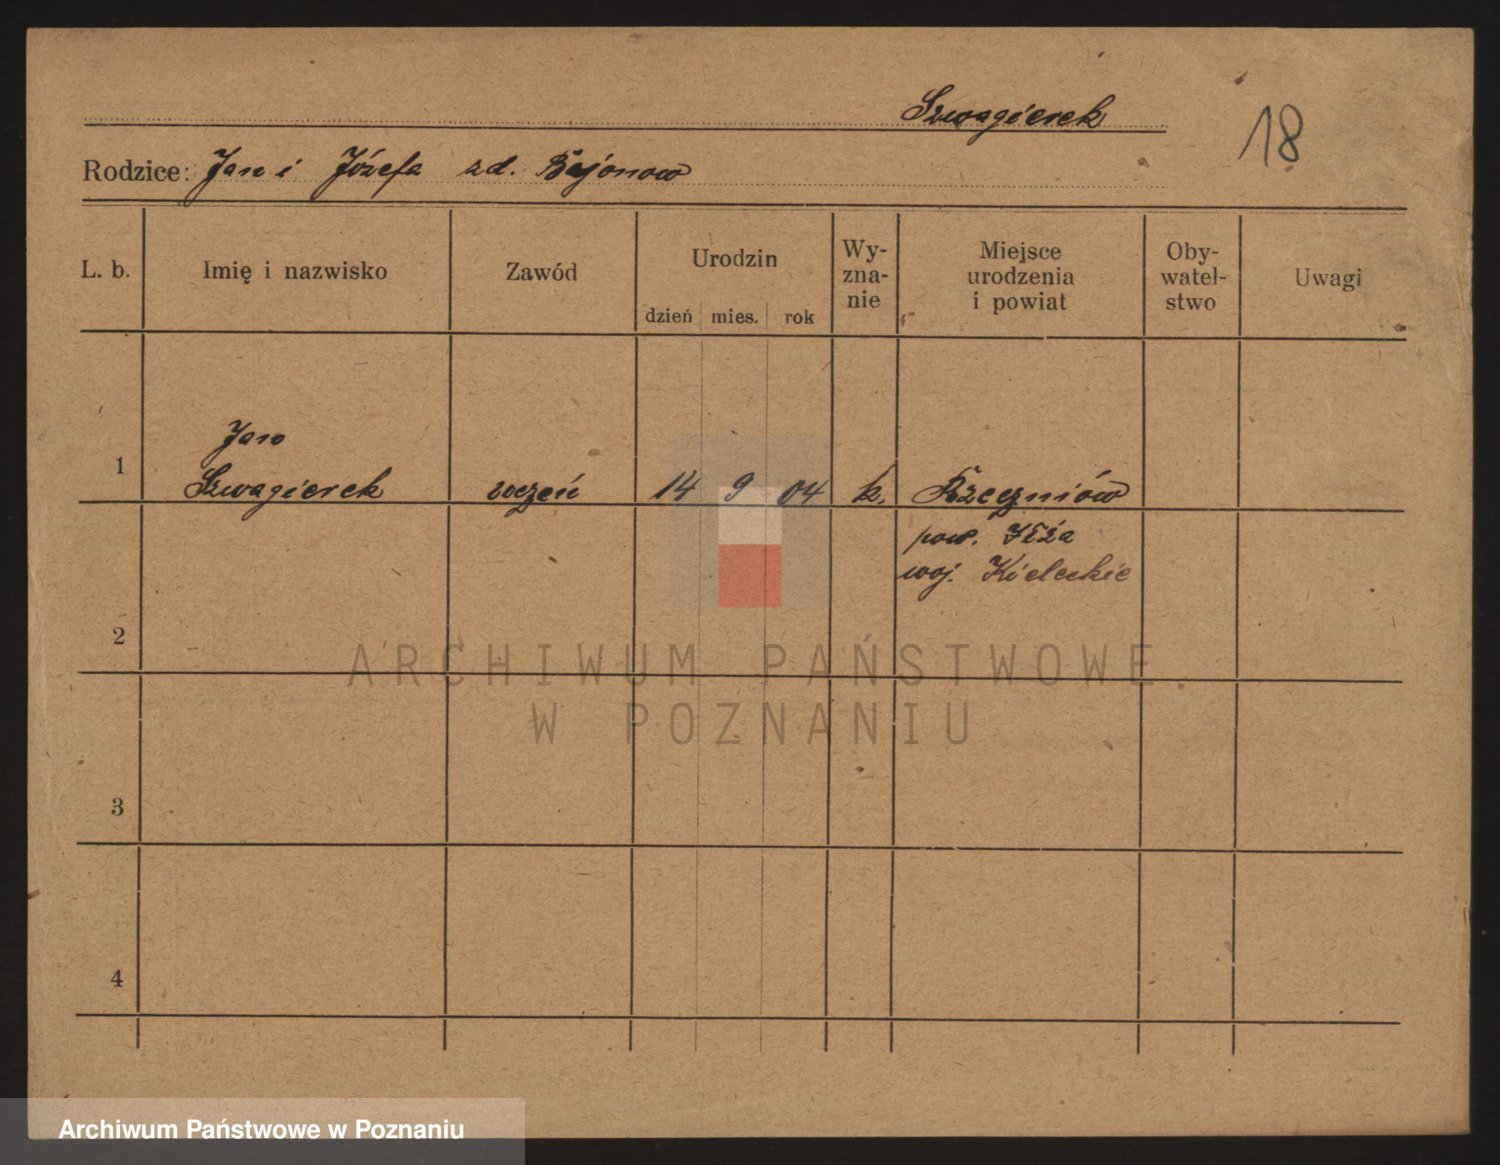 Szwagierek
18
Rodzice: Jan i Józefa zd. Bajonow
L. b.
Imię i nazwisko
Zawód
Urodzin
dzień mies. rok
Wy-
zna-
nie
Miejsce
urodzenia
i powiat
Oby-
watel-
stwo
Uwagi
1
Jan
Szwagierek
uczeń
14 9 04
k.
Rzeczniów
pow. Iłża
woj. Kieleckie
2
3
4
ARCHIWUM PAŃSTWOWE
W POZNANIU
Archiwum Państwowe w Poznaniu